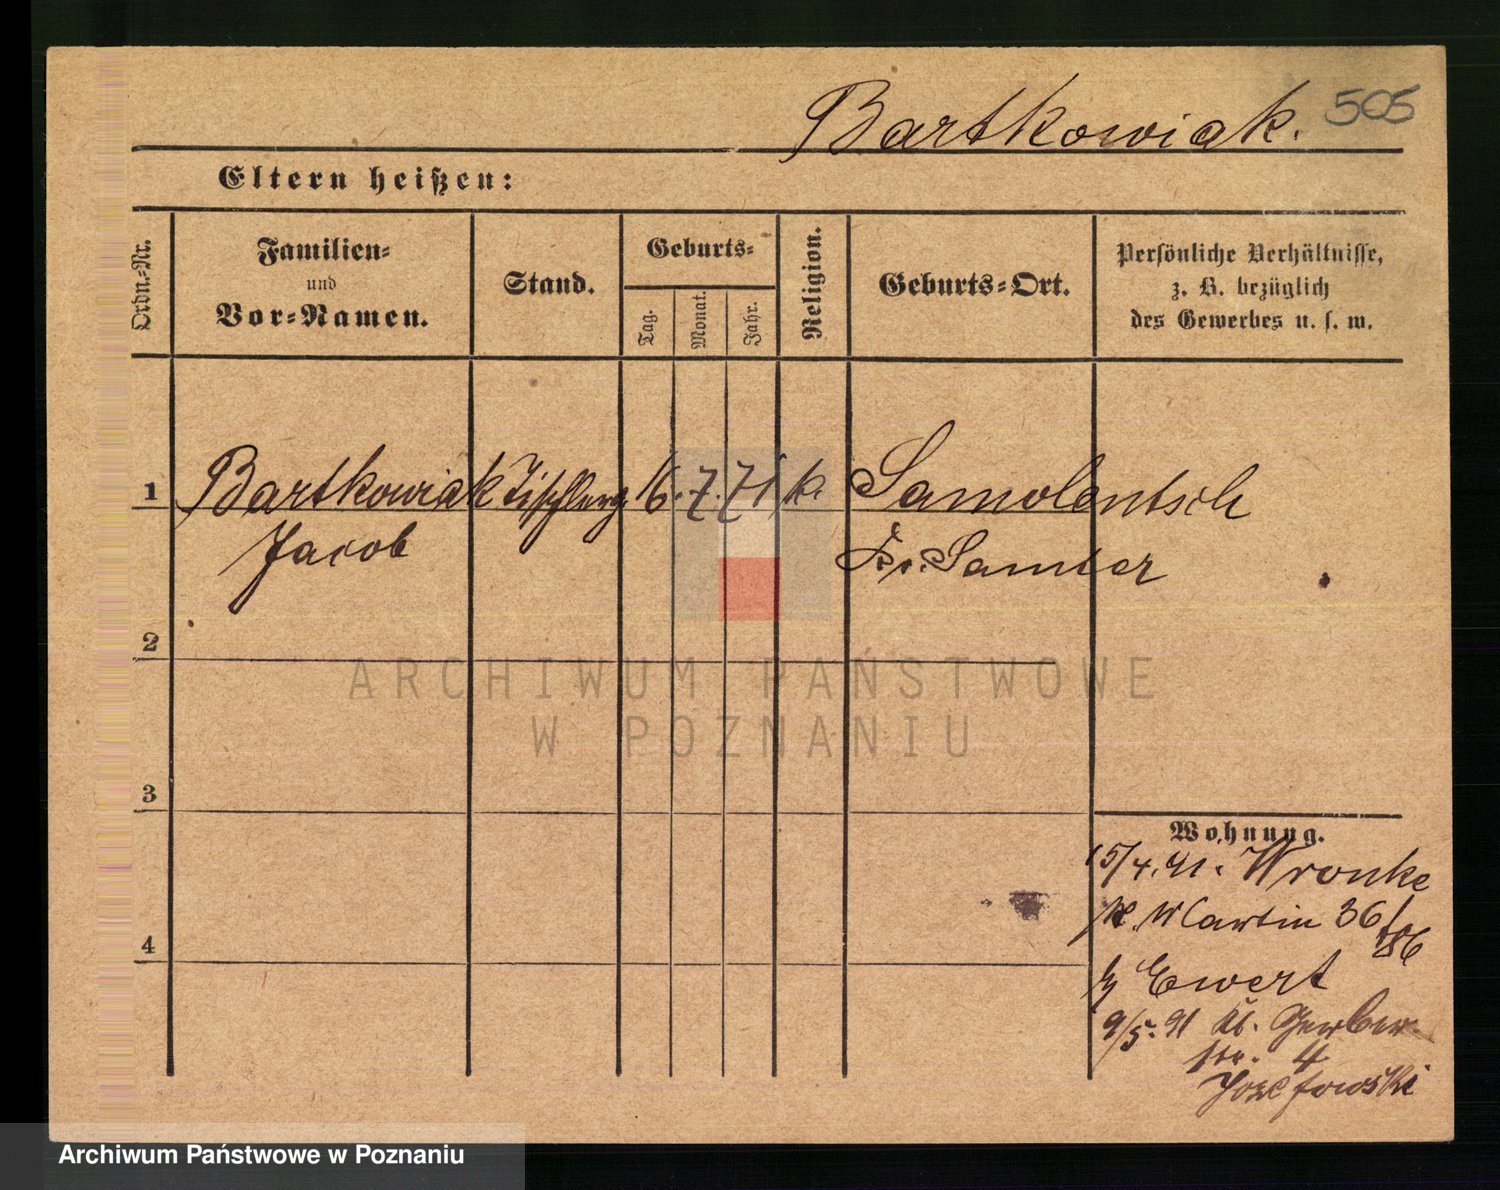 Bartkowiak. 505
Eltern heißen:
Ordn.-Nr.
Familien-
und
Vor-Namen.
Stand.
Geburts-
Tag.
Monat.
Jahr.
Religion.
Geburts-Ort.
Persönliche Verhältnisse,
z. B. bezüglich
des Gewerbes u. s. w.
1 Bartkowiak Tischlerg 16. 7. 71 k. Samolentsch
Jacob Kr. Samter
2
ARCHIWUM PAŃSTWOWE
W POZNANIU
3
4
Wohnung.
15/4. 91. Wronke
Martin 36/
b/ Ewert
9/5. 91 Kl. Gerber
str. 4
Jozefowski
Archiwum Państwowe w Poznaniu